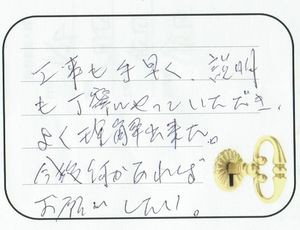 工事も手早く、説明
も丁寧にやっていただき、
よく理解出来た。
今後何かあれば
お願いしたい。